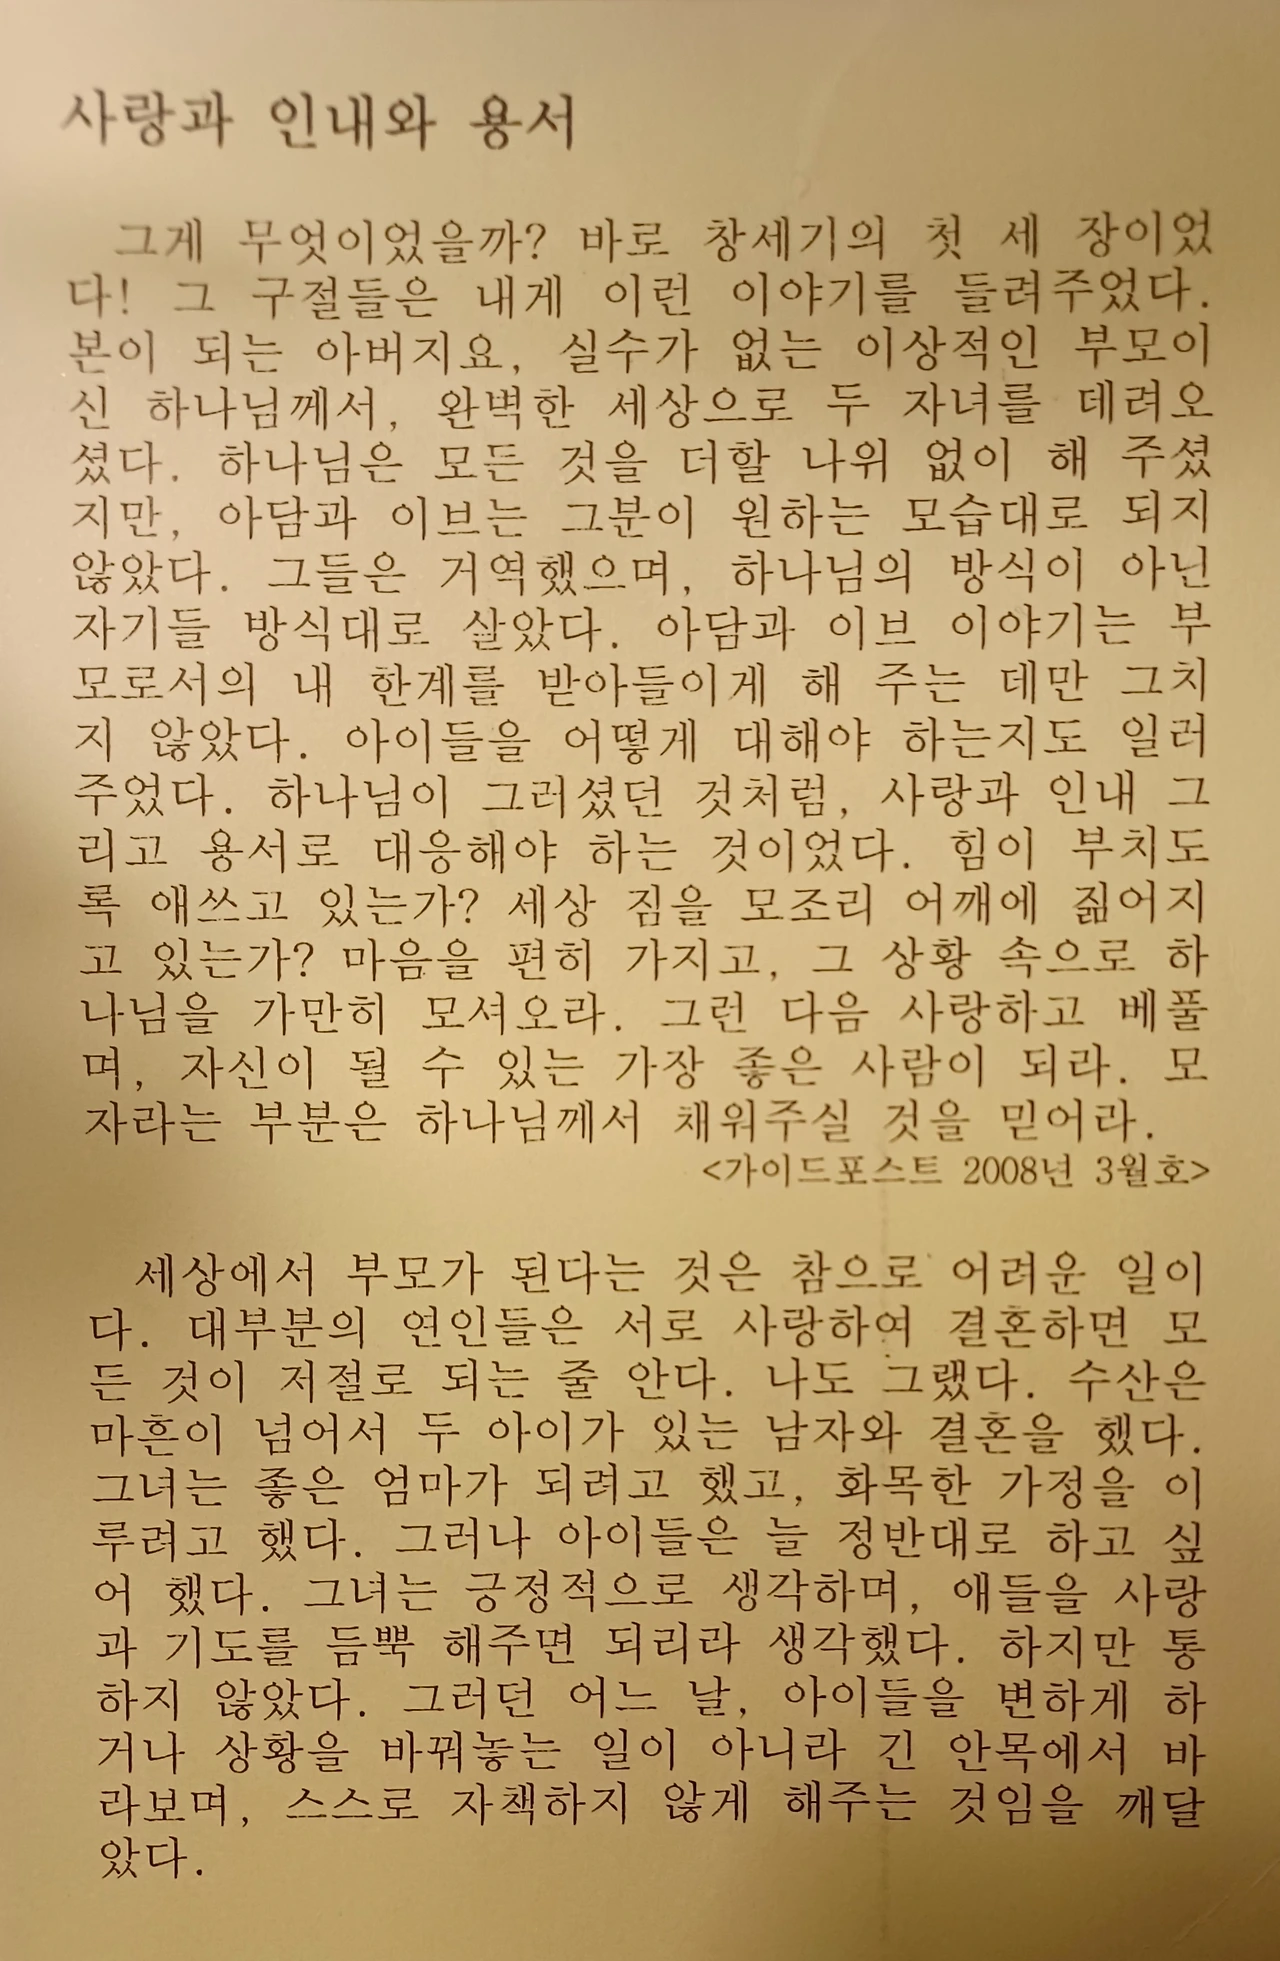 사랑과 인내와 용서
그게 무엇이었을까? 바로 창세기의 첫 세 장이었
다! 그 구절들은 내게 이런 이야기를 들려주었다.
본이 되는 아버지요, 실수가 없는 이상적인 부모이
신 하나님께서, 완벽한 세상으로 두 자녀를 데려오
셨다. 하나님은 모든 것을 더할 나위 없이 해 주셨
지만, 아담과 이브는 그분이 원하는 모습대로 되지
않았다. 그들은 거역했으며, 하나님의 방식이 아닌
자기들 방식대로 살았다. 아담과 이브 이야기는 부
모로서의 내 한계를 받아들이게 해 주는 데만 그치
지 않았다. 아이들을 어떻게 대해야 하는지도 일러
주었다. 하나님이 그러셨던 것처럼, 사랑과 인내 그
리고 용서로 대응해야 하는 것이었다. 힘이 부치도
록 애쓰고 있는가? 세상 짐을 모조리 어깨에 짊어지
고 있는가? 마음을 편히 가지고, 그 상황 속으로 하
나님을 가만히 모셔오라. 그런 다음 사랑하고 베풀
며, 자신이 될 수 있는 가장 좋은 사람이 되라. 모
자라는 부분은 하나님께서 채워주실 것을 믿어라.
<가이드포스트 2008년 3월호>
세상에서 부모가 된다는 것은 참으로 어려운 일이
다. 대부분의 연인들은 서로 사랑하여 결혼하면 모
든 것이 저절로 되는 줄 안다. 나도 그랬다. 수산은
마흔이 넘어서 두 아이가 있는 남자와 결혼을 했다.
그녀는 좋은 엄마가 되려고 했고, 화목한 가정을 이
루려고 했다. 그러나 아이들은 늘 정반대로 하고 싶
어 했다. 그녀는 긍정적으로 생각하며, 애들을 사랑
과 기도를 듬뿍 해주면 되리라 생각했다. 하지만 통
하지 않았다. 그러던 어느 날, 아이들을 변하게 하
거나 상황을 바꿔놓는 일이 아니라 긴 안목에서 바
라보며, 스스로 자책하지 않게 해주는 것임을 깨달
았다.